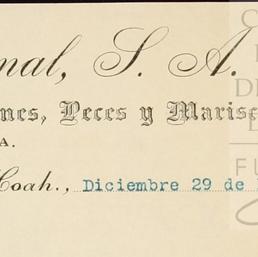 nal, S. A.
nes, Peces y Marisc
A.
Coah., Diciembre 29 de